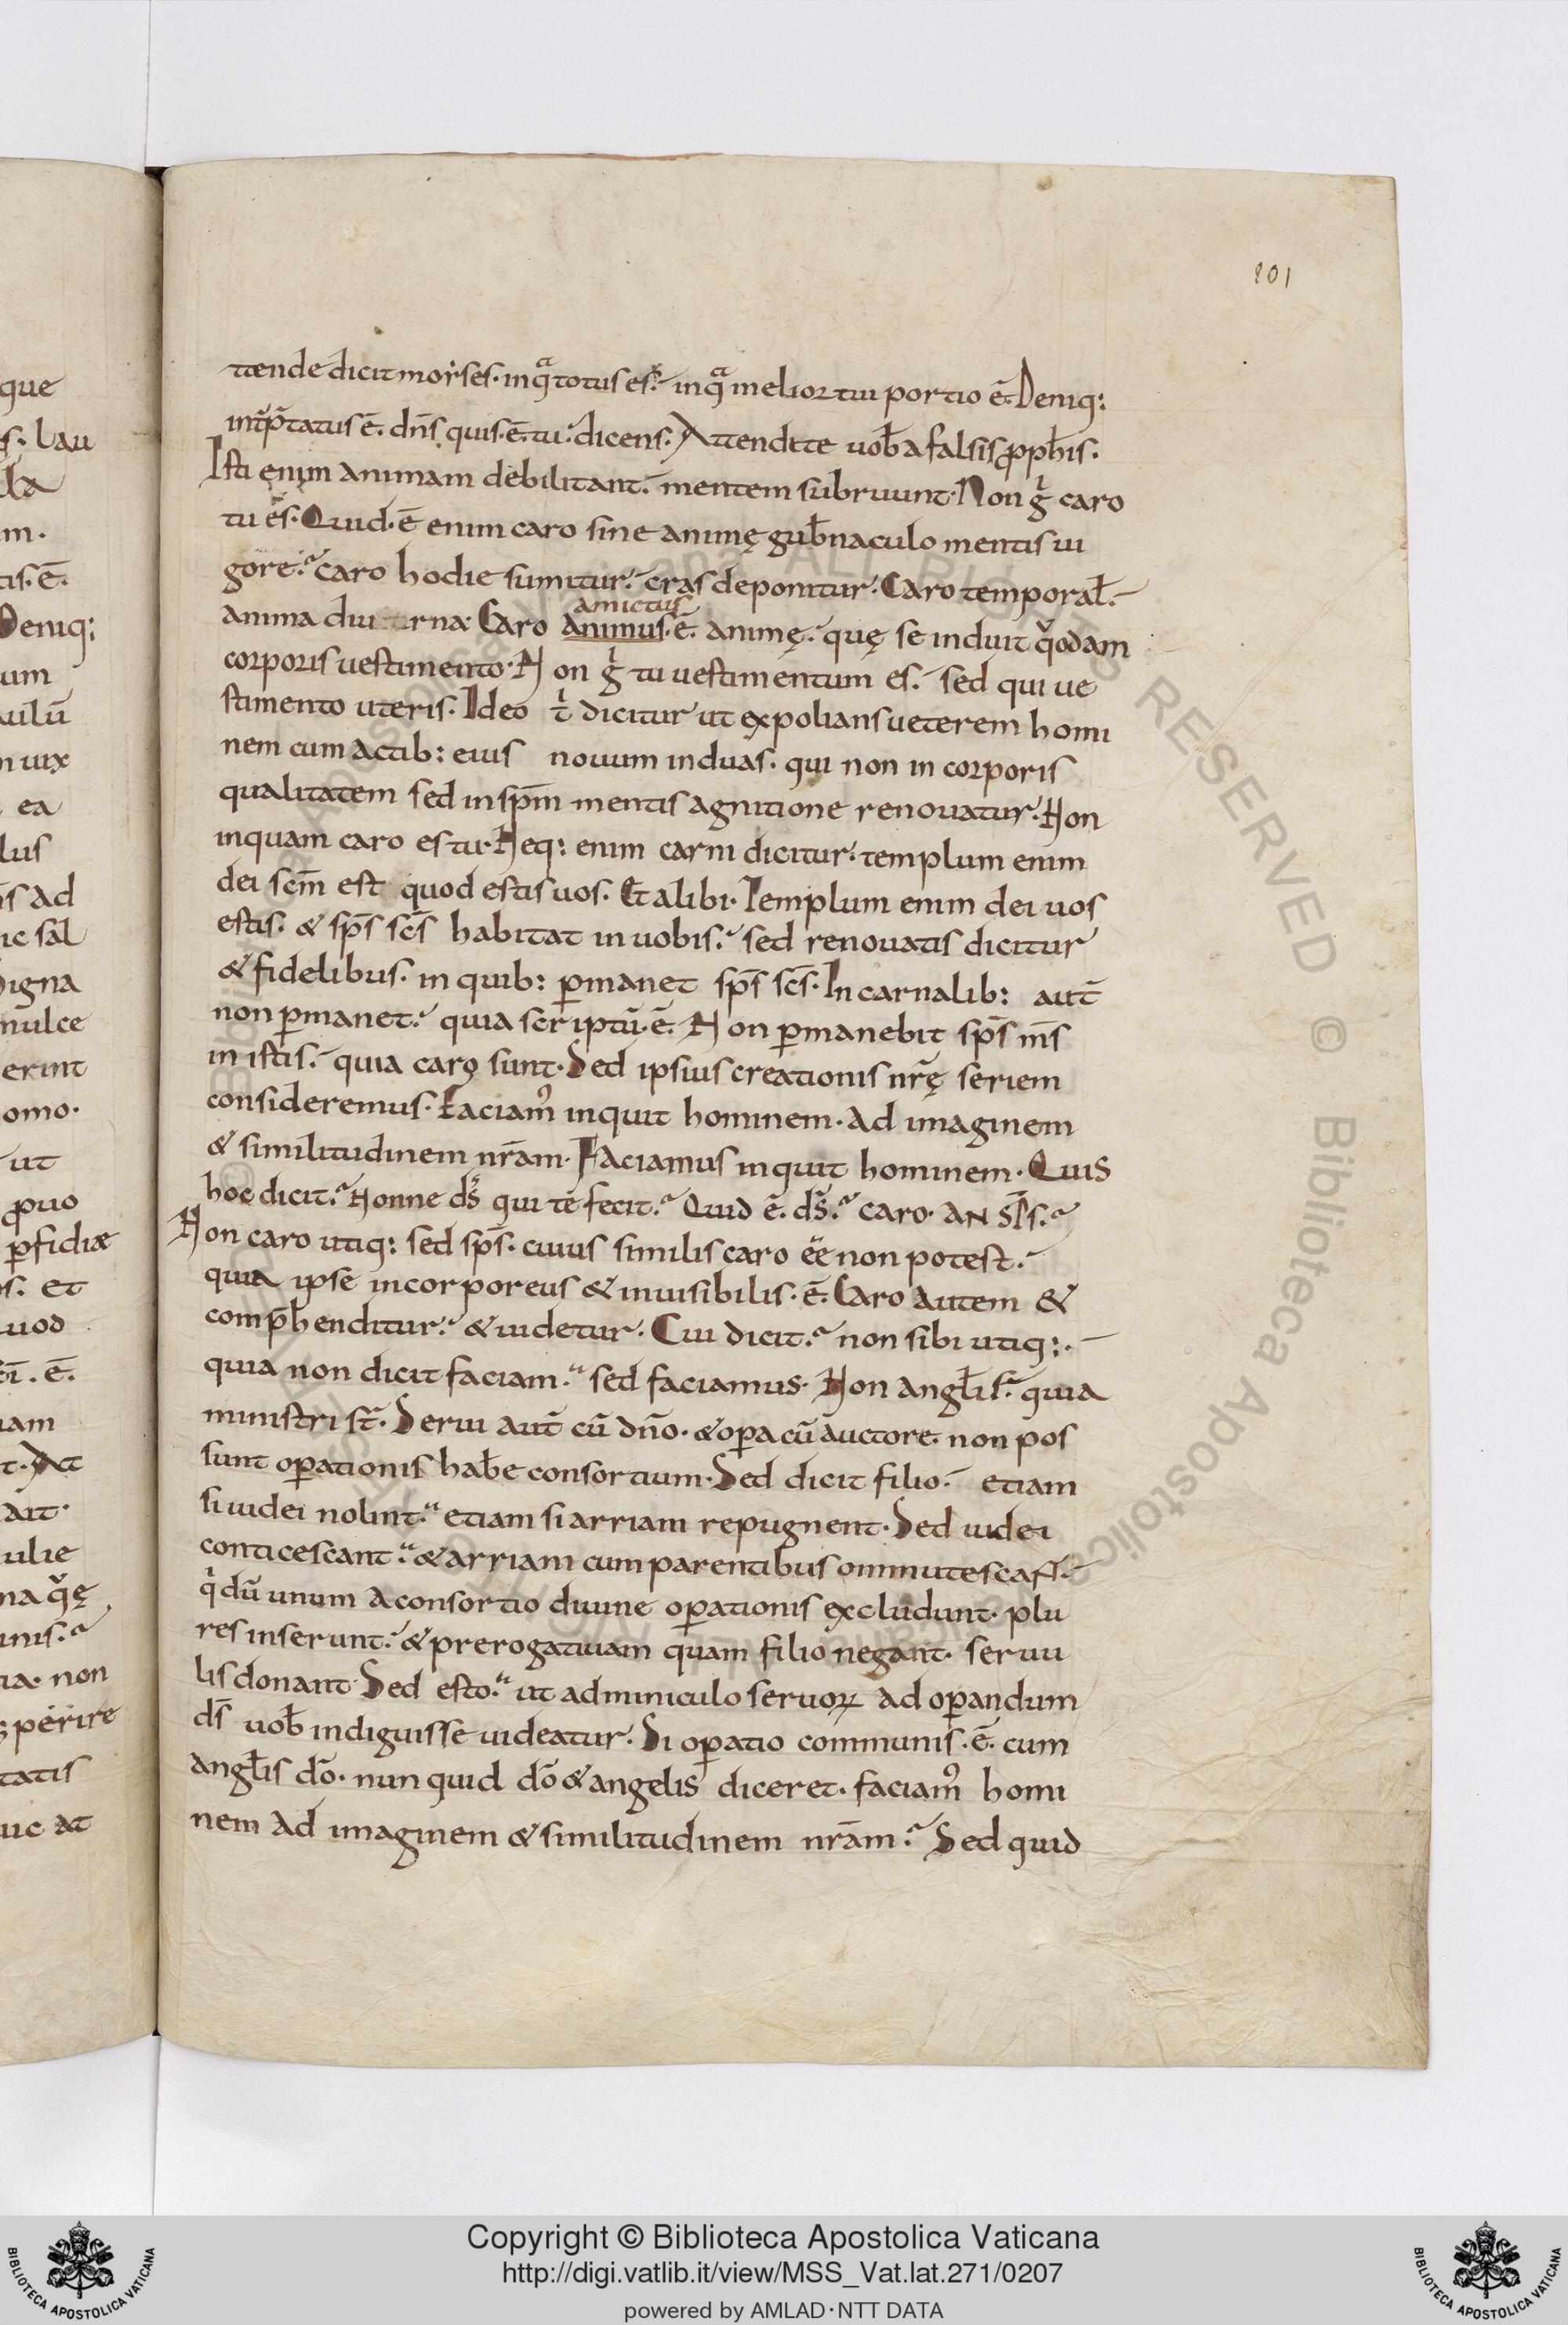 101
ttende dicit moẏses· inqᵃ totus es· inqᵃ melior tui portio ē· Deniq:
int̄p̄tatus ē· dn̄s quis·ē·tu· dicens· Attendite uob̄ a falsis ꝓph̄is·
Isti enim animam debilitant· mentem subruunt· Non gͥ caro
tu es· Quid·ē enim caro sine animę gub̄naculo mentis ui
gore· caro hodie sumitur· cras deponitur· Caro temporal̄·
anima diuturna· Caro animus·ē· animę· quę se induit qͦodam
amictus
corporis uestimento· Non gͥ tu uestimentum es· sed qui ue
stimento uteris· Ideo tͥ dicitur ut expolians ueterem homi
nem cum actib: eius nouum induas· qui non in corporis
qualitatem sed in sp̄m mentis agnitione renouatur· Non
inquam caro es tu· Neq: enim carni dicitur· templum enim
dei sc̄m est quod estis uos· Et alibi· Templum enim dei uos
estis· & sp̄s sc̄s habitat in uobis· sed renouatis dicitur
& fidelibus· in quib: ꝑmanet sp̄s sc̄s· In carnalib: aut̄
non ꝑmanet· quia scriptū·ē· Non ꝑmanebit sp̄s m̄s
in istis· quia caro sunt· Sed ipsius creationis nr̄ę seriem
consideremus· Faciam᾽ inquit hominem· ad imaginem
& similitudinem nr̄am· Faciamus inquit hominem· Quis
hoc dicit· Nonne ds̄ qui te fecit· Quid ē· ds̄· caro· an sp̄s·
Non caro utiq: sed sp̄s· cuius similis caro eē non potest·
quia ipse incorporeus & inuisibilis·ē· Caro autem &
comp̄henditur· & uidetur· Cui dicit· non sibi utiq:·
quia non dicit faciam· sed faciamus· Non angl̄is· quia
ministri st̄· Serui aut̄ cū dn̄o· & oꝑa cū auctore· non pos
sunt oꝑationis hab̄e consortium· Sed dicit filio· etiam
si iudei nolint· etiam si arriani repugnent· Sed iudei
conticescant· & arriani cum parentibus ommutescant·
qͥ dū unum a consortio diuine oꝑationis excludunt· plu
res inserunt· & prerogatiuam quam filio negant· seruu
lis donant· Sed esto· ut adminiculo seruoꝝ ad oꝑandum
ds̄ uob̄ indiguisse uideatur· Si oꝑatio communis·ē· cum
angl̄is dō· nunquid dō & angelis diceret· faciam᾽ homi
nem ad imaginem & similitudinem nr̄am· Sed quid
Copyright © Biblioteca Apostolica Vaticana
http://digi.vatlib.it/view/MSS_Vat.lat.271/0207
powered by AMLAD·NTT DATA